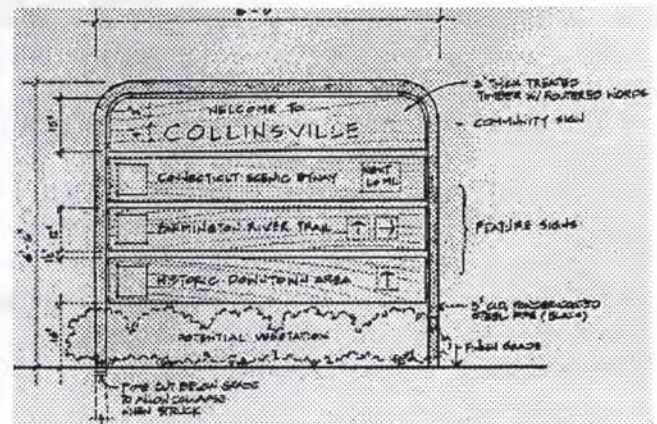 WELCOME TO
COLLINSVILLE
CONNECTICUT SCENIC BYWAY
NEXT
MI.
FARMINGTON RIVER TRAIL ↑ →
HISTORIC DOWNTOWN AREA ↑
POTENTIAL VEGETATION
2" THICK TREATED
TIMBER W/ ROUTERED WORDS
COMMUNITY SIGN
FEATURE SIGNS
O.D. POWDER COATED
STEEL PIPE (BLACK)
FINISH GRADE
PIPE CUT BELOW GRADE
TO ALLOW COLLAPSE
WHEN STRUCK